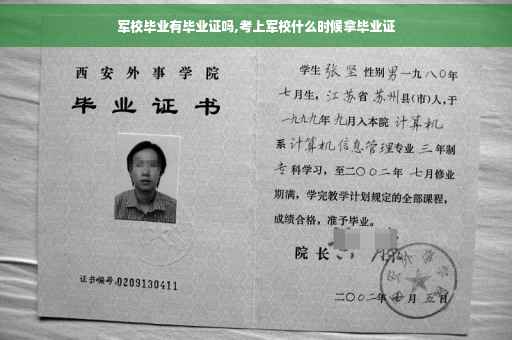 军校毕业有毕业证吗,考上军校什么时候拿毕业证
西安外事学院
毕业证书
证书编号:0209130411
学生 张坚 性别 男 一九八〇年
七月生, 江苏省 苏州县(市)人,于
一九九九年 九月入本院 计算机
系 计算机信息管理专业 三 年制
专科学习,至二〇〇二年 七月修业
期满,学完教学计划规定的全部课程,
成绩合格,准予毕业。
院长
二〇〇二年 七月 五日